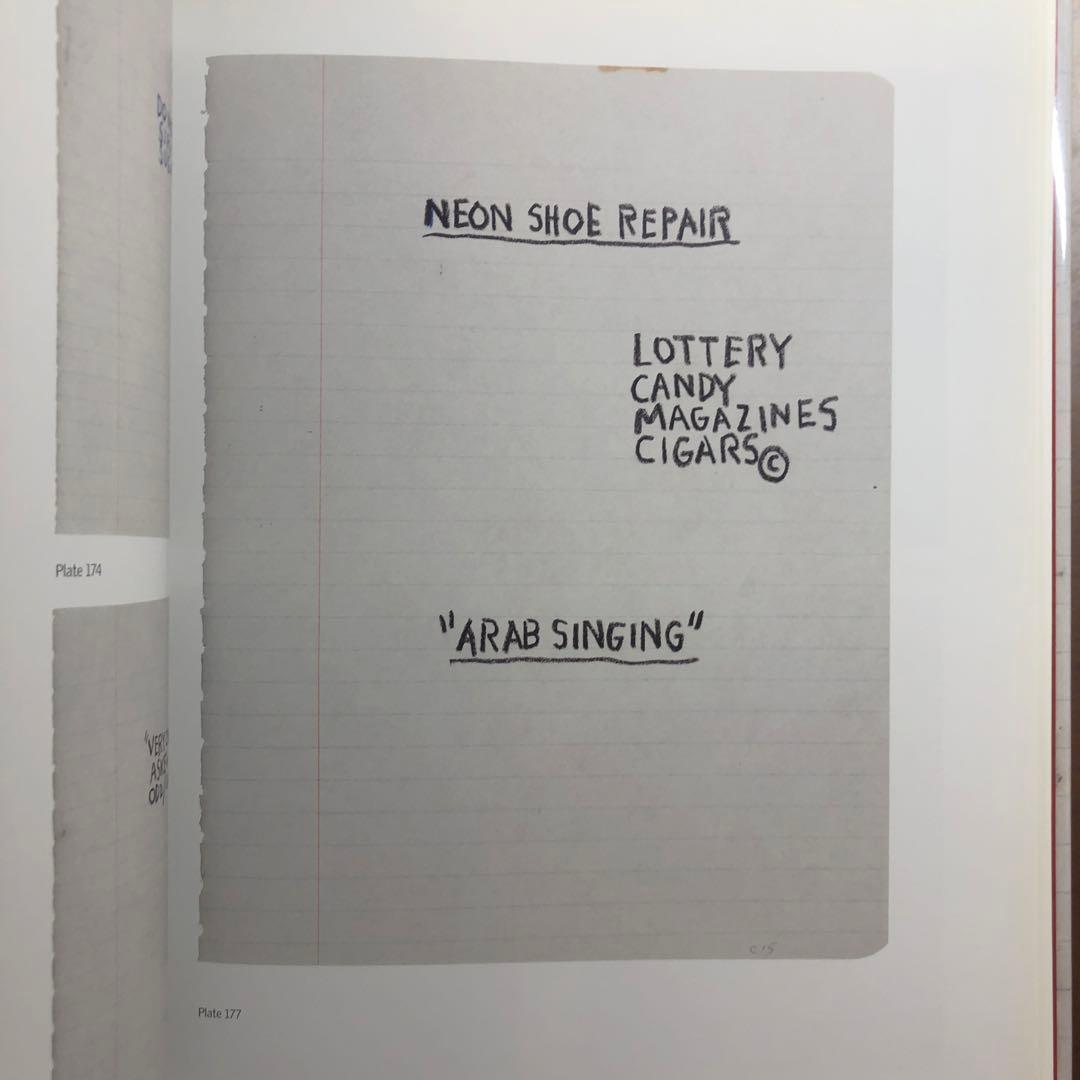 Plate 174
NEON SHOE REPAIR
LOTTERY
CANDY
MAGAZINES
CIGARS©
"ARAB SINGING"
C15
Plate 177